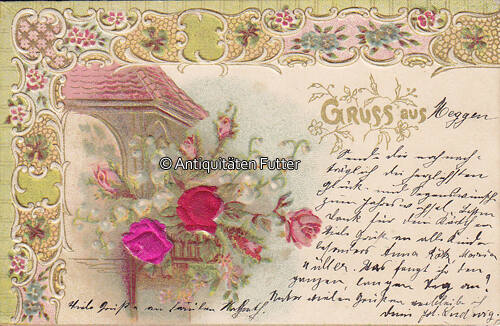 GRUSS aus Meggen
© Antiquitäten Futter
Sende dir noch nach-
träglich die herzlichsten
Glück und Segenswünsche
zum Jahreswechsel, besten
Dank für den
Viele Grüße an alle Kinder
besonders Anna Maria
Müller. Was fangt ihr den
ganzen, langen Tag an?
Unter vielen Grüßen verbleibe ich
dein Ludwig
Viele Grüße an Familien